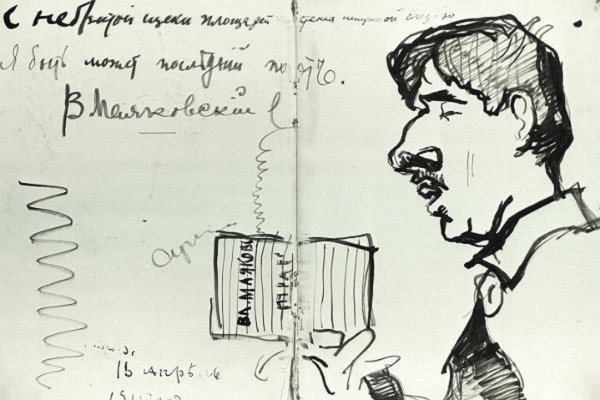 С небритой щеки площадей стекая ненужной слезою
Я быть может последний поэт.
В Маяковский
ВЛ. МАЯКОВ
ТРАГ
13 Апрѣль